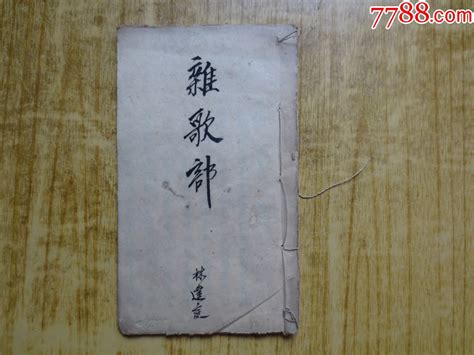 7788.com
雜歌部
林建